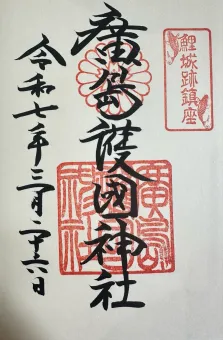 鯉城跡鎮座
廣島護國神社
令和七年三月二十六日
廣島護國神社